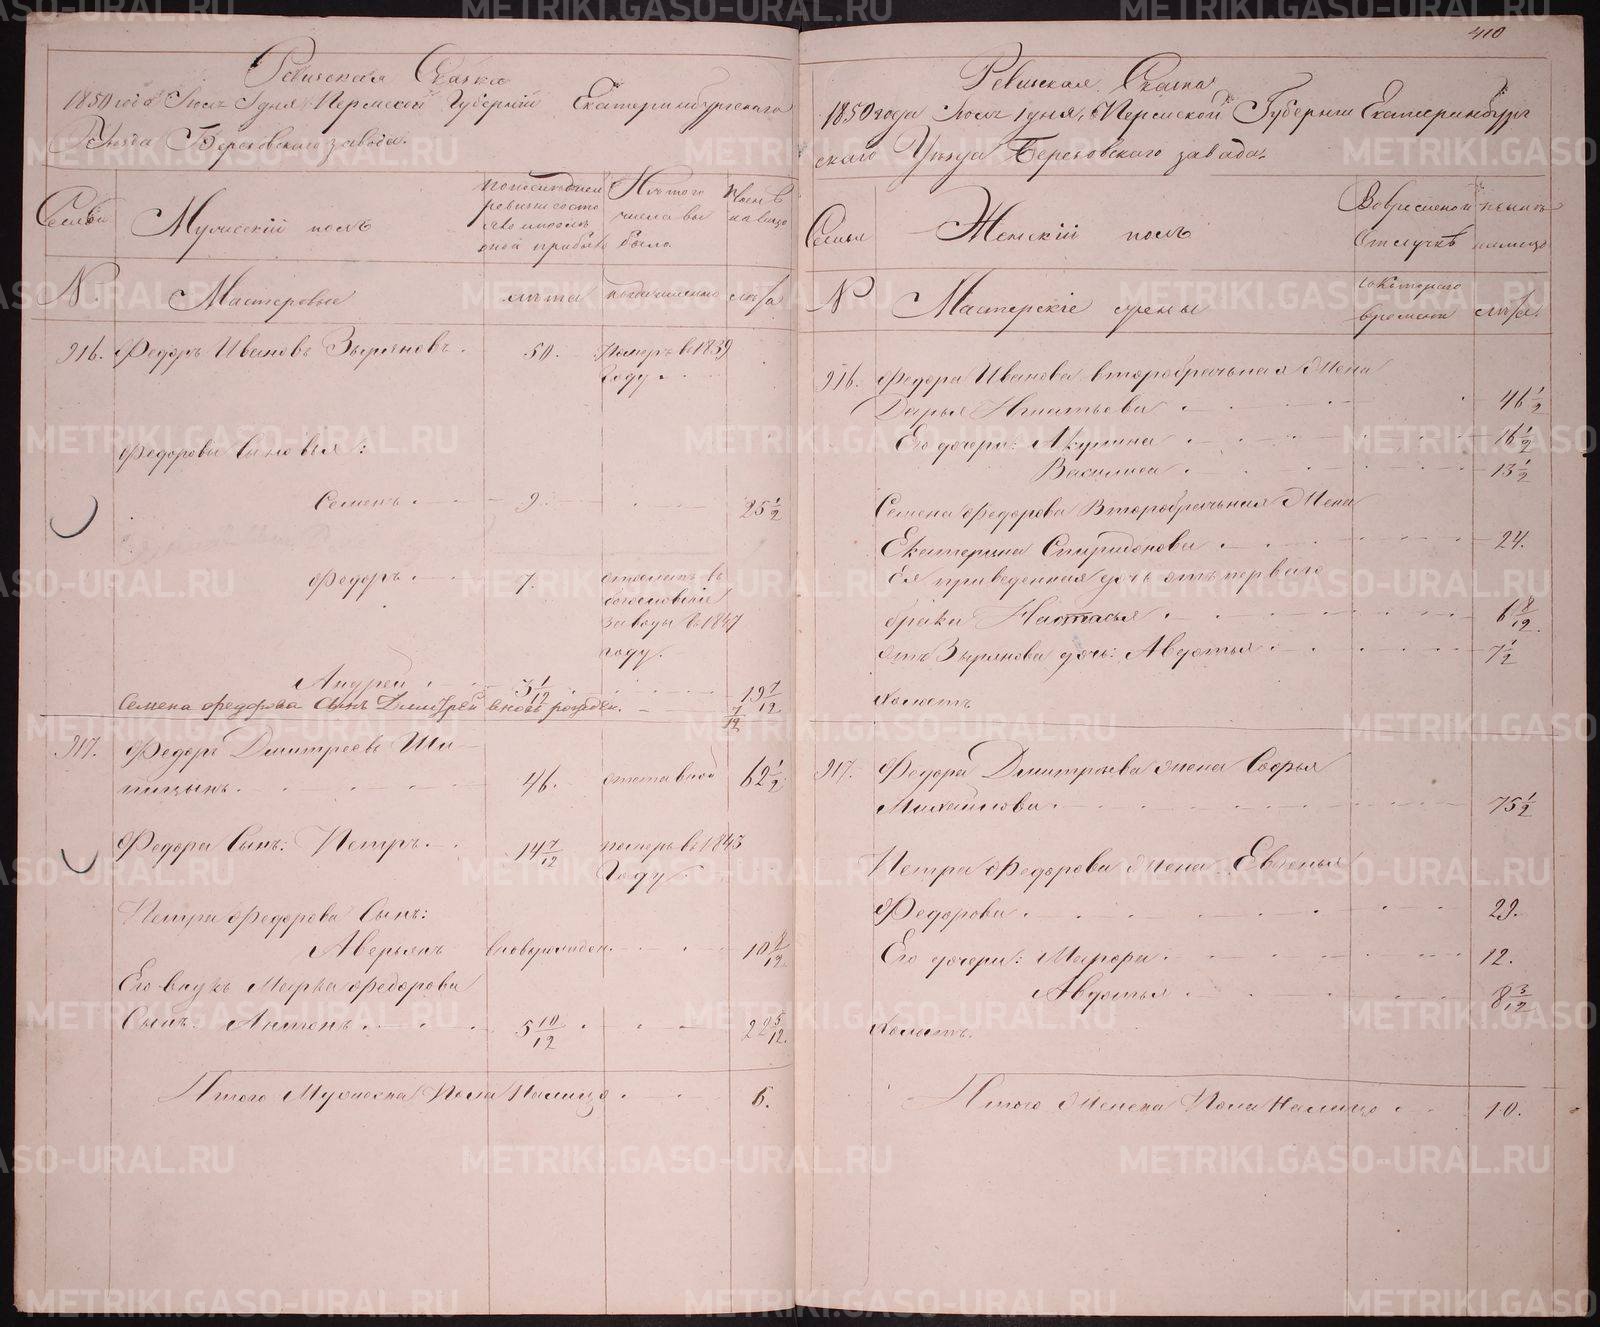 Ревизская Сказка
1850 года Июля 1 дня Пермской Губернии Екатеринбургскаго
Уезда Березовскаго завода.
Семьи
Мужескій полъ
По последней ревизіи состояло и после оной прибыло
Изъ того числа выбыло
Ныне на лицо
№.
Мастеровые
лѣта
лѣта
916. Федоръ Ивановъ Зыряновъ. 50. Померъ въ 1839
году.
Федоровы Сыновья:
Семенъ. 9. 25 1/2
Федоръ. 7. въ
богословскіе
заводы въ 1847
году.
Андрей 3 1/12 19 7/12
Семена Федорова Сынъ Дмитрей вновь рожден. 7/12
917. Федоръ Дмитреевъ Ши-
пицынъ. 46. отставной 62 1/2
Федора Сынъ: Петръ. 14 7/12 померъ въ 1843
Году.
Петра Федорова Сынъ:
Аверьянъ вновь рожден. 10 8/12
Его внукъ Марка Федорова
Сынъ: Антонъ. 5 10/12 22 5/12
Итого Мужеска Пола Налицо 6.
410
Ревизская Сказка
1850 года Июля 1 дня, Пермской Губернии Екатеринбург
скаго Уезда Березовскаго завода.
Семьи
Женскій полъ
Во временной Отлучкѣ
ныне налицо
№
Мастерскіе жены
съ котораго
времени
лѣта
916. Федора Иванова второбрачьная Жена
Дарья Игнатьева 46 1/2
Его дочери: Акулина 16 1/2
Василиса 13 1/2
Семена Федорова Второбрачьная Жена
Екатерина Спиридонова 24.
Ея приведенная дочь отъ перваго
брака Настасья 6 8/12
отъ Зырянова дочь: Авдотья 7 1/2
Холостъ
917. Федора Дмитріева жена Софья
Михайлова. 75 1/2
Петра Федорова Жена Евгенья
Федорова. 29.
Его дочери: Марфа. 12.
Авдотья 8 3/12
Холостъ.
Итого Женска Пола Налицо 10.
METRIKI.GASO-URAL.RU